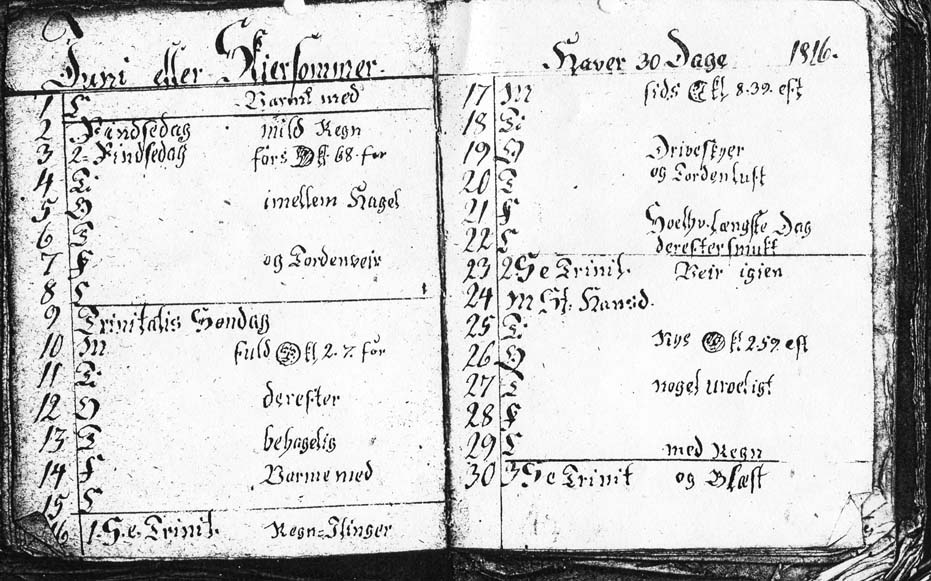 Juni eller Skiersommer.
1 L Varmt med
2 Pindsedag mild Regn
3 2- Pindsedag førs kl 6 8 for
4 T
5 O imellem Hagel
6 T
7 F og Tordenveir
8 L
9 Trinitatis Søndag
10 M fuld kl 2. 7. for
11 T
12 O derefter
13 T behagelig
14 F Varme med
15 L
16 1. S. e. Trinit. Regn-Ilinger
Haver 30 Dage 1816.
17 M sids kl 8. 39. eft
18 T
19 O Driveskyer
20 T og Tordenluft
21 F Soelhv. længste Dag
22 L derefter smukt
23 2 S e Trinit. Veir igien
24 M St. Hansd.
25 T
26 O Nye kl. 2 59. eft
27 T noget uroeligt
28 F
29 L med Regn
30 3 S e Trinit og Blæst